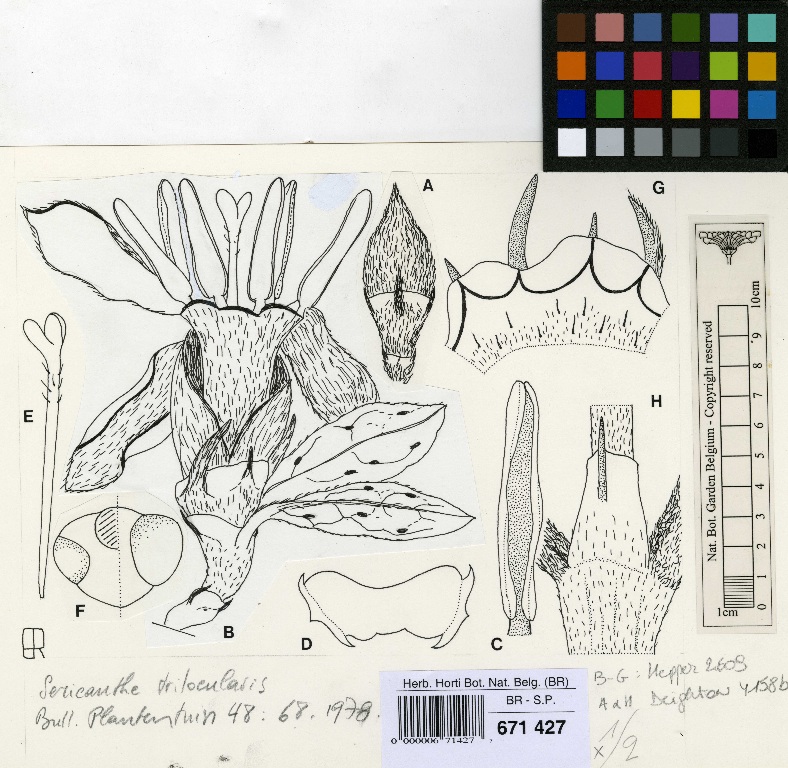 A
G
E
H
F
B
D
C
Nat. Bot. Garden Belgium - Copyright reserved
10cm
9
8
7
6
5
4
3
2
1
0
1cm
Sericanthe trilocularis
Bull. Plantentuin 48: 68. 1978.
Herb. Horti Bot. Nat. Belg. (BR)
BR - S.P.
671 427
0 000000 671427
B-G: Hepper 2609
A & H Deighton 4158b
x 1/2